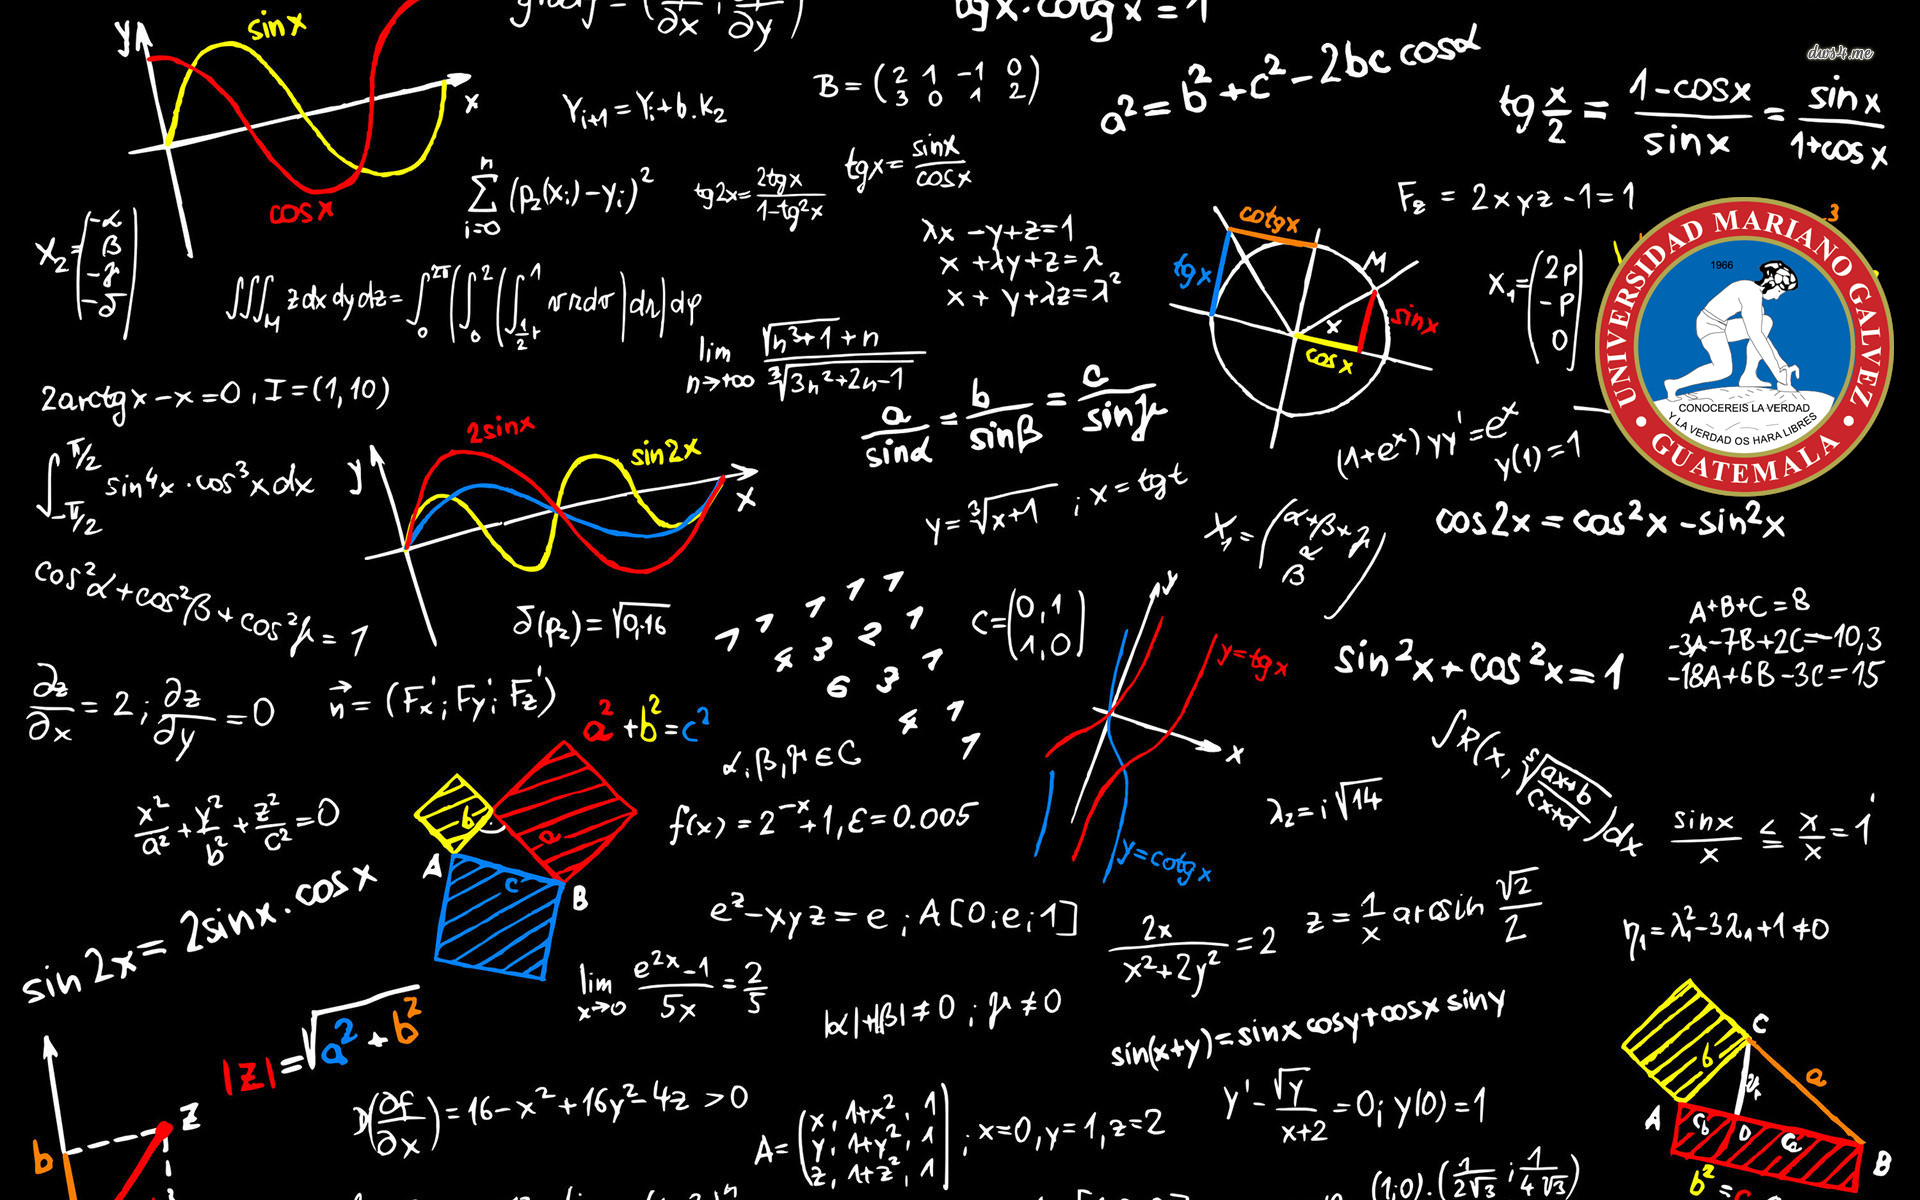 tgx·cotgx=1
dws4.me
y
sinx
x
cosx
Yi+1 = Yi+b.K2
B = (2 1 -1 0
3 0 1 2)
a² = b²+c²-2bc cosα
tg x/2 = 1-cosx/sinx = sinx/1+cosx
n
∑ (p2(xi)-yi)²
i=0
tg2x = 2tgx/1-tg²x
tgx = sinx/cosx
Fz = 2xyz-1=1
X2 = (-α
β
-γ
-δ)
λx-y+z=1
x+λy+z=λ
x+y+λz=λ²
cotgx
tgx
M
sinx
x
cosx
X1 = (2p
-p
0)
UNIVERSIDAD MARIANO GALVEZ
1966
CONOCEREIS LA VERDAD
Y LA VERDAD OS HARA LIBRES
• GUATEMALA •
∭M zdxdydz =
lim n→+∞ √n³+1+n/∛3n²+2n-1
2arctgx-x=0, I=(1,10)
a/sinα = b/sinβ = c/sinγ
(1+eˣ)yy'=eˣ
y(1)=1
∫ π/2 -π/2 sin⁴x·cos³xdx
y
2sinx
sin2x
x
y=∛x+1 ; x=tgt
X1 = (α+β+γ
α
β)
cos2x=cos²x-sin²x
cos²α+cos²β+cos²γ=1
δ(p2)=√0.16
1 1 1 1 1
4 3 2 1
6 3 1
4 1
1
C=(0,1
1,0)
y
y=tgx
x
y=cotgx
sin²x+cos²x=1
A+B+C=8
-3A-7B+2C=-10,3
-18A+6B-3C=15
∂z/∂x=2; ∂z/∂y=0
n=(Fx'; Fy'; Fz')
a²+b²=c²
α,β,γ∈C
b
a
c
A
B
x²/a²+y²/b²+z²/c²=0
f(x)=2⁻ˣ+1, ε=0.005
λ2=i√14
∫R(x, ⁵√ax+b/cx+d)dx
sinx/x ≤ x/x = 1
sin2x=2sinx·cosx
e^z-xyz=e; A[0;e;1]
2x/x²+2y²=2
z=1/x arcsin √2/2
η1=λ1²-3λ1+1≠0
lim x→0 e²ˣ-1/5x=2/5
|α|+|β|≠0 ; γ≠0
sin(x+y)=sinxcosy+cosxsiny
|z|=√a²+b²
z
b
(∂f/∂x)=16-x²+16y²-4z>0
A=(x, 1+x², 1
y, 1+y², 1
z, 1+z², 1) ; x=0,y=1,z=2
y'-√y/x+2=0; y(0)=1
C
b
a
A
cb
D
ca
B
b²=c
(1;0).(1/2√3 ; 1/4√3)